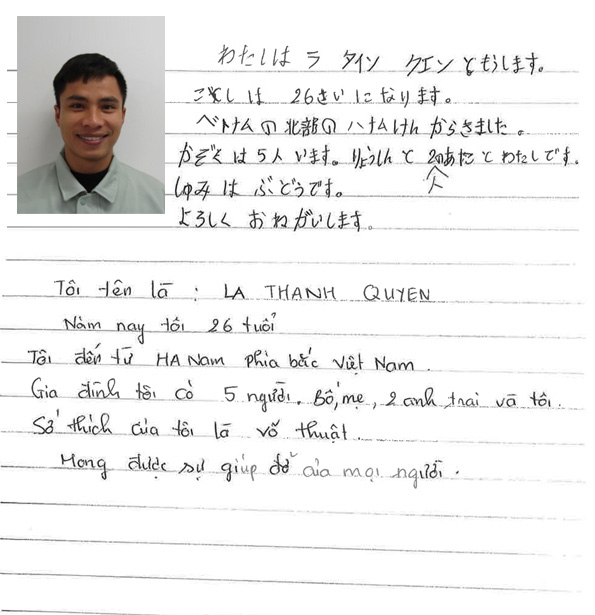 わたしは ラ タイン クエン ともうします。
ことしは 26さいになります。
ベトナムの北部のハナムけんからきました。
かぞくは5人います。りょうしんと2人のあにとわたしです。
しゅみは ぶどうです。
よろしく おねがいします。
Tôi tên là : LA THANH QUYEN
Năm nay tôi 26 tuổi
Tôi đến từ HA Nam phía bắc Việt Nam.
Gia đình tôi có 5 người. Bố, mẹ, 2 anh trai và tôi.
Sở thích của tôi là võ thuật.
Mong được sự giúp đỡ của mọi người.